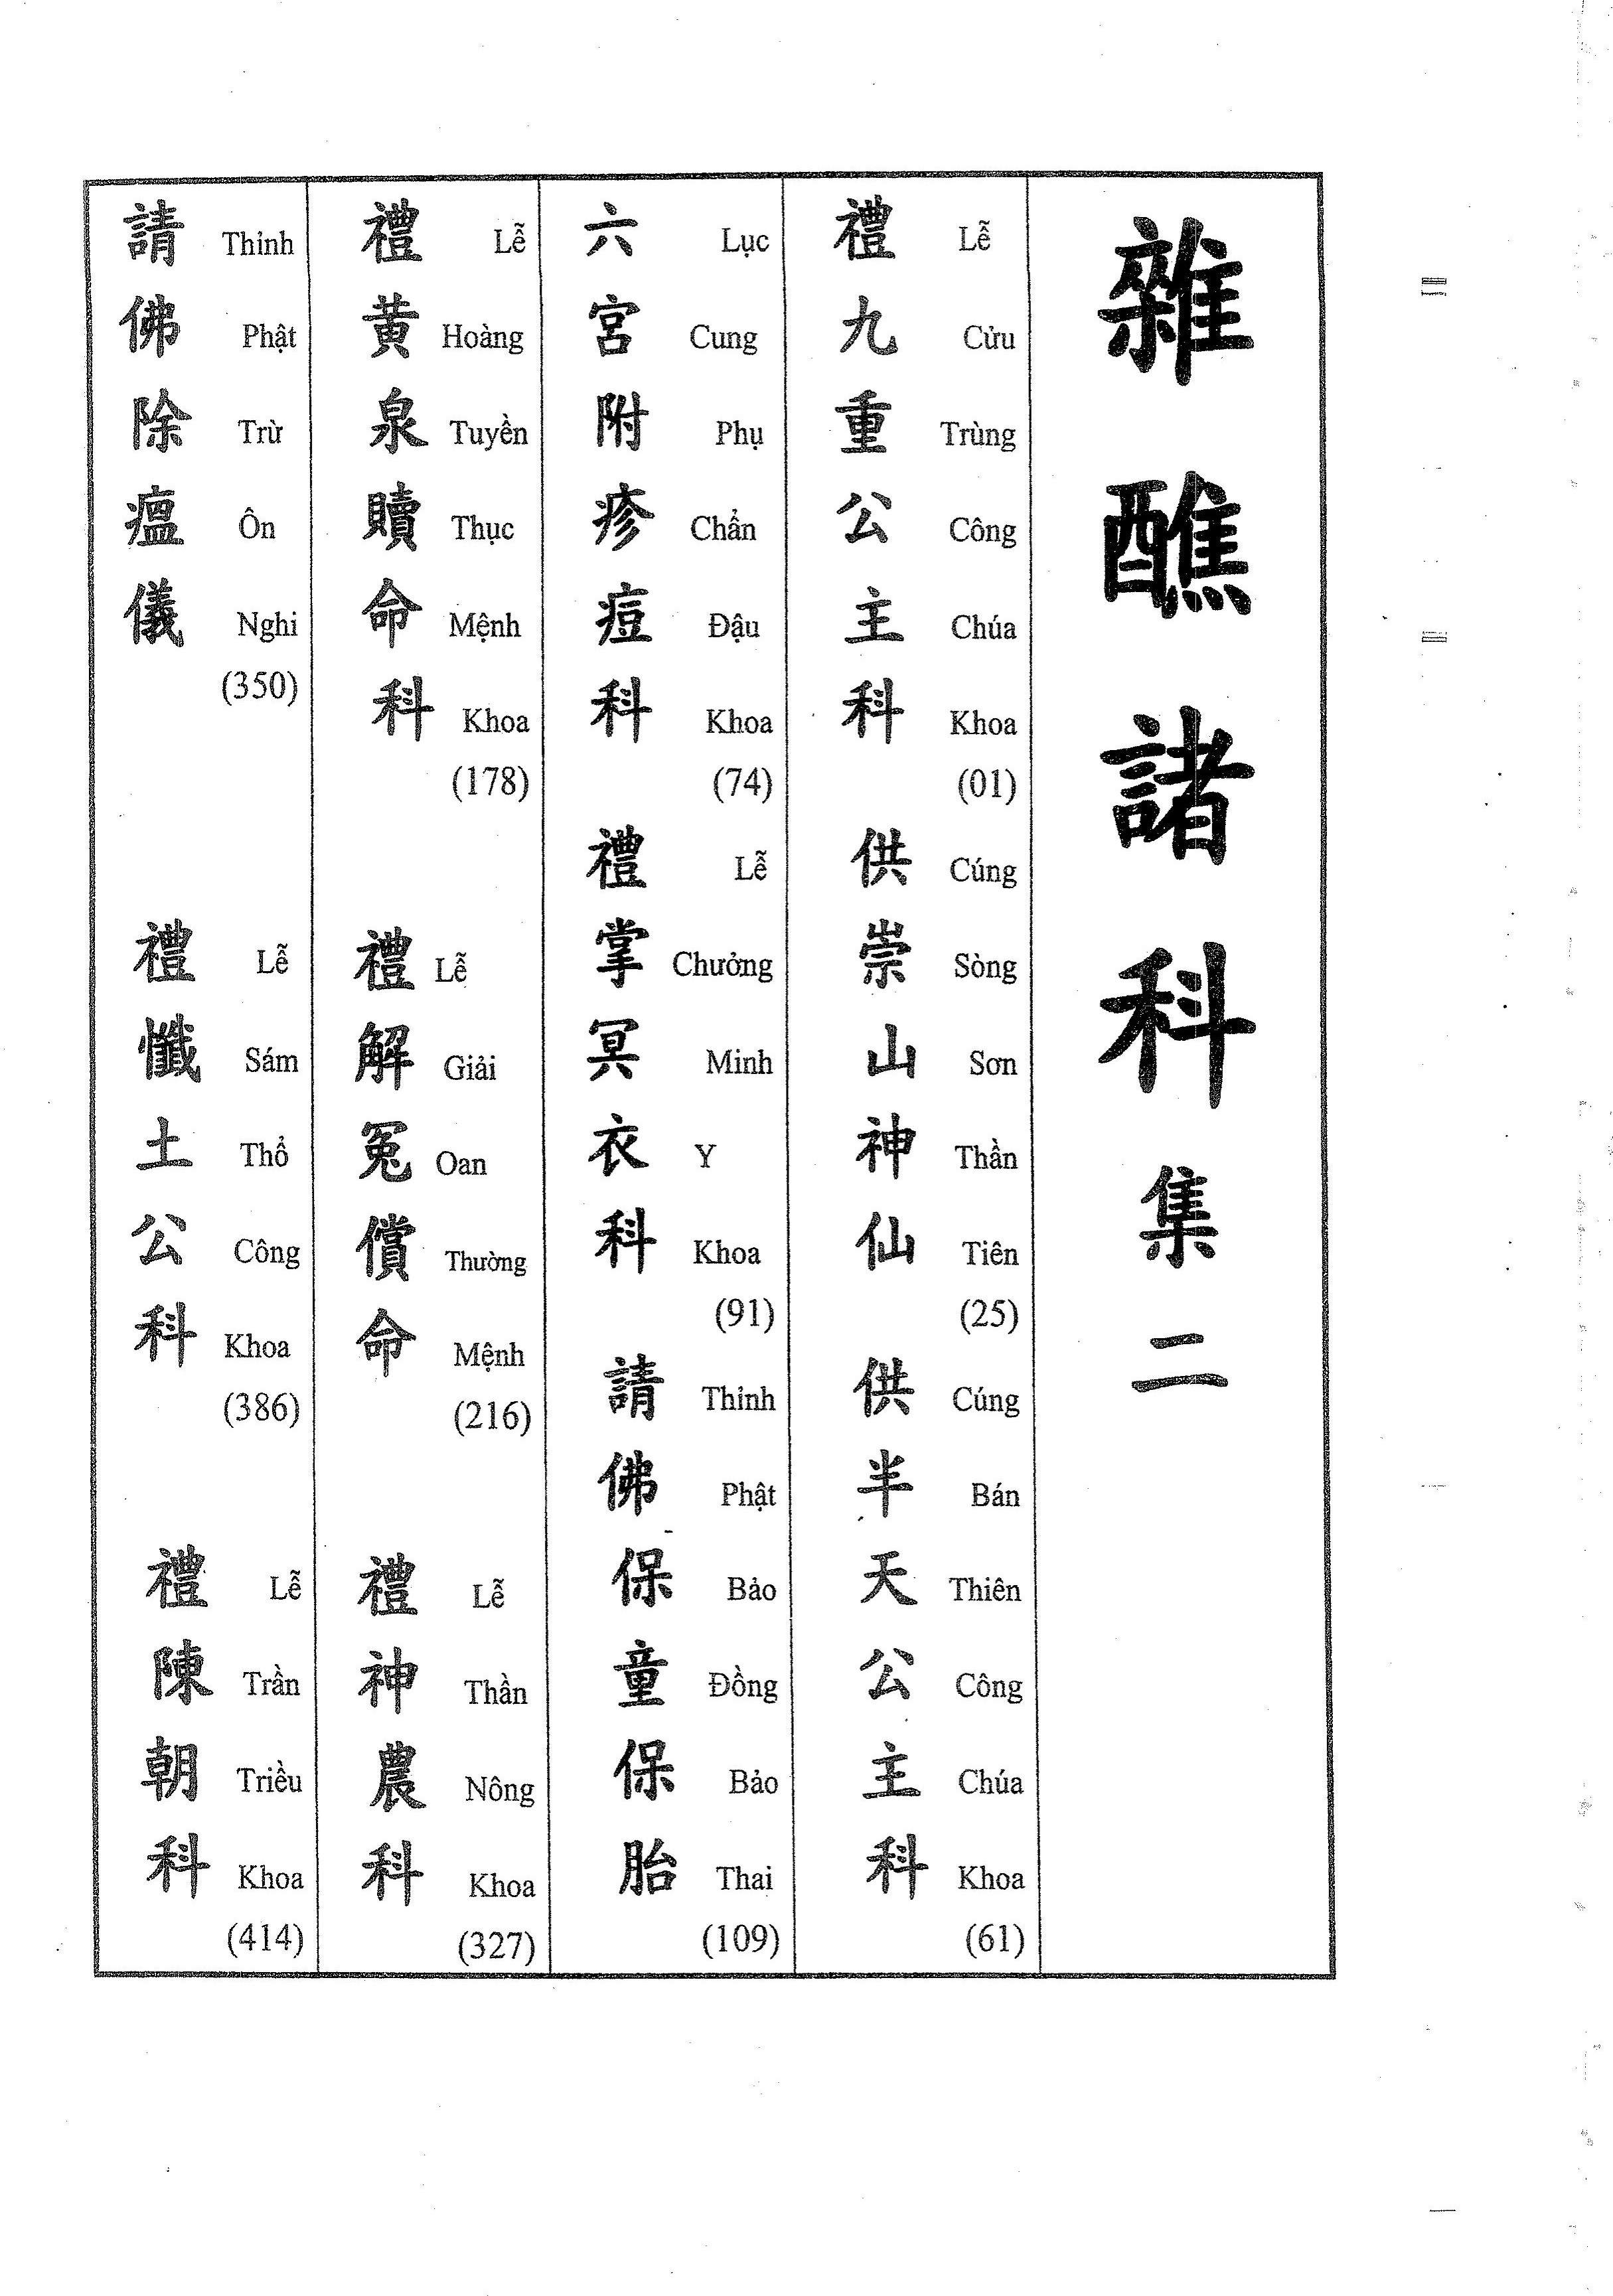 雜醮諸科集二
禮九重公主科
Lễ Cửu Trùng Công Chúa Khoa
(01)
供崇山神仙
Cúng Sòng Sơn Thần Tiên
(25)
供半天公主科
Cúng Bán Thiên Công Chúa Khoa
(61)
六宮附疹痘科
Lục Cung Phụ Chẩn Đậu Khoa
(74)
禮掌冥衣科
Lễ Chưởng Minh Y Khoa
(91)
請佛保童保胎
Thỉnh Phật Bảo Đồng Bảo Thai
(109)
禮黃泉贖命科
Lễ Hoàng Tuyền Thục Mệnh Khoa
(178)
禮解冤償命
Lễ Giải Oan Thường Mệnh
(216)
禮神農科
Lễ Thần Nông Khoa
(327)
請佛除瘟儀
Thỉnh Phật Trừ Ôn Nghi
(350)
禮懺土公科
Lễ Sám Thổ Công Khoa
(386)
禮陳朝科
Lễ Trần Triều Khoa
(414)